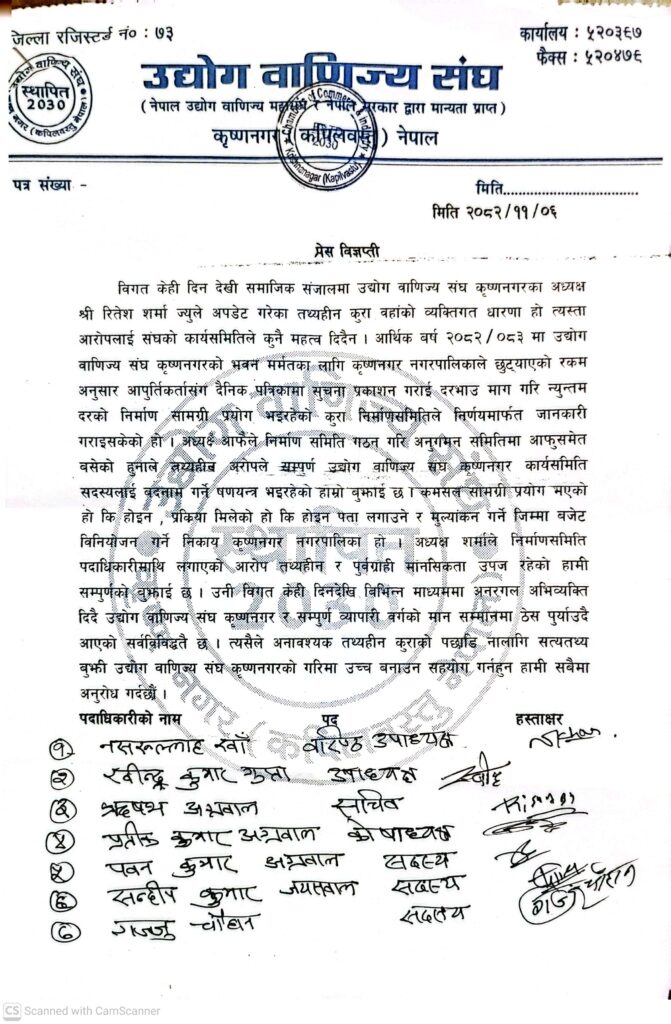 जिल्ला रजिस्टर्ड नं० : ७३
कार्यालय : ५२०३९७
फैक्स : ५२०४७६
उद्योग वाणिज्य संघ
(नेपाल उद्योग वाणिज्य महासंघ र नेपाल सरकार द्वारा मान्यता प्राप्त)
कृष्णनगर (कपिलवस्तु) नेपाल
स्थापित
2030
Chamber of Commerce & Industry
Krishnanagar (Kapilvastu)
पत्र संख्या -
मिति..................................
मिति २०८२/११/०६
प्रेस विज्ञप्ती
विगत केही दिन देखी समाजिक संजालमा उद्योग वाणिज्य संघ कृष्णनगरका अध्यक्ष
श्री रितेश शर्मा ज्युले अपडेट गरेका तथ्यहीन कुरा वहांको व्यक्तिगत धारणा हो त्यस्ता
आरोपलाई संघको कार्यसमितिले कुनै महत्व दिदैन । आर्थिक बर्ष २०८२/०८३ मा उद्योग
वाणिज्य संघ कृष्णनगरको भवन मर्मतका लागि कृष्णनगर नगरपालिकाले छुट्याएको रकम
अनुसार आपुर्तिकर्तासंग दैनिक पत्रिकामा सुचना प्रकाशन गराई दरभाउ माग गरि न्युन्तम
दरको निर्माण सामग्री प्रयोग भइरहेको कुरा निर्माणसमितिले निर्णयमार्फत जानकारी
गराइसकेको हो । अध्यक्ष आफैले निर्माण समिति गठन गरि अनुगमन समितिमा आफुसमेत
बसेको हुनाले तथ्यहीन अरोपले सम्पुर्ण उद्योग वाणिज्य संघ कृष्णनगर कार्यसमिति
सदस्यलाई वदनाम गर्ने षणयन्त्र भइरहेको हाम्रो बुझाई छ । कमसल सामाग्री प्रयोग भएको
हो कि होइन , प्रक्रिया मिलेको हो कि होइन पता लगाउने र मुल्यांकन गर्ने जिम्मा बजेट
विनियोजन गर्ने निकाय कृष्णनगर नगरपालिका हो । अध्यक्ष शर्माले निर्माणसमिति
पदाधिकारीमाथि लगाएको आरोप तथ्यहीन र पुर्वग्रही मानसिकता उपज रहेको हामी
सम्पुर्णको बुझाई छ । उनी विगत केही दिनदेखि विभिन्न माध्यममा अनरगल अभिव्यक्ति
दिदै उद्योग वाणिज्य संघ कृष्णनगर र सम्पुर्ण व्यापारी वर्गको मान सम्मानमा ठेस पुर्याउदै
आएको सर्वविविदतै छ । त्यसैले अनावश्यक तथ्यहीन कुराको पछाडि नालागि सत्यतथ्य
बुझी उद्योग वाणिज्य संघ कृष्णनगरको गरिमा उच्च बनाउन सहयोग गर्नहुन हामी सबैमा
अनुरोध गर्दछौं ।
पदाधिकारीको नाम पद हस्ताक्षर
१ नसरुल्लाह खाँ वरिष्ठ उपाध्यक्ष
२ रवीन्द्र कुमार गुप्ता उपाध्यक्ष
३ ऋषभ अग्रवाल सचिव
४ प्रतीक कुमार अग्रवाल कोषाध्यक्ष
५ पवन कुमार अग्रवाल सदस्य
६ सन्दीप कुमार जयसवाल सदस्य
७ गज्जु चौहान सदस्य
CS Scanned with CamScanner